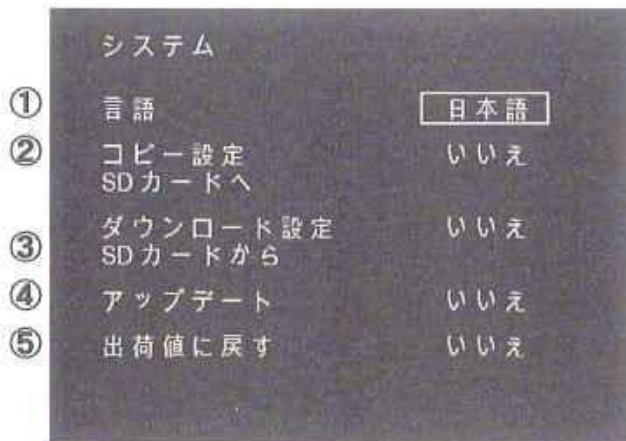 システム
① 言語 日本語
② コピー設定 いいえ
SDカードへ
ダウンロード設定 いいえ
③ SDカードから
④ アップデート いいえ
⑤ 出荷値に戻す いいえ